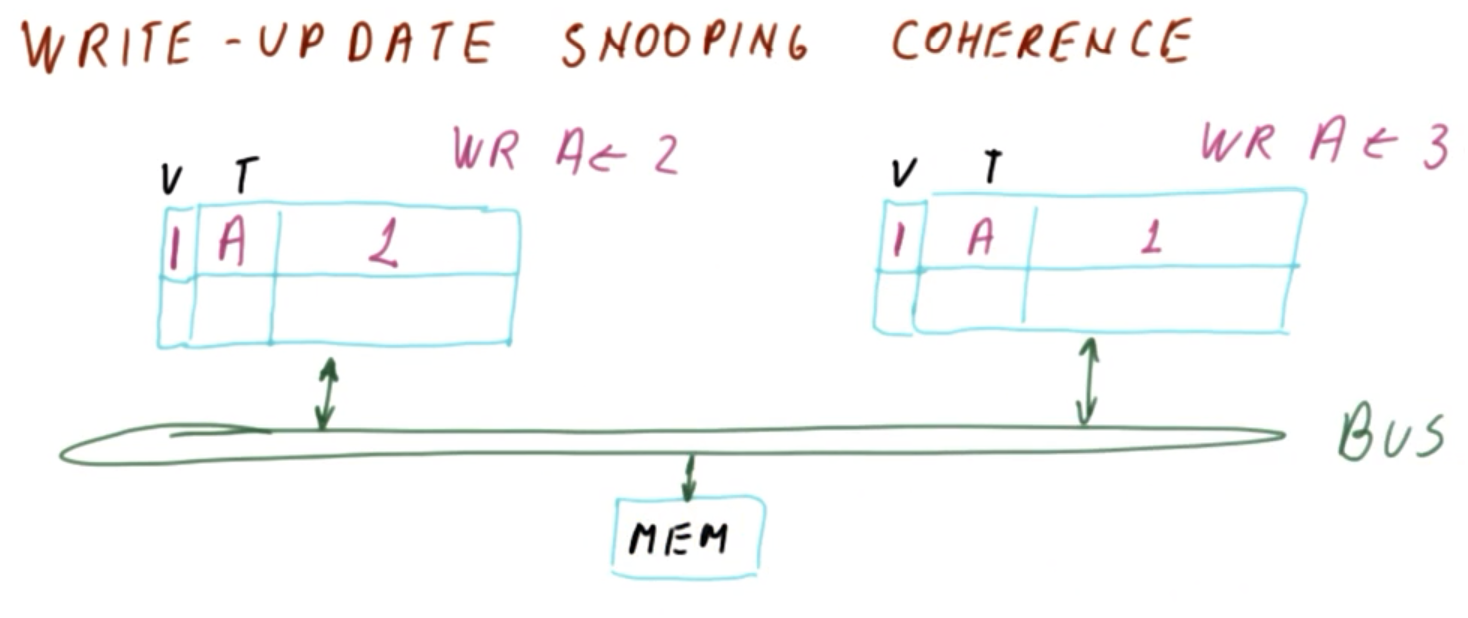 WRITE-UPDATE SNOOPING COHERENCE
WR A ← 2
WR A ← 3
V T
V T
1 A 1
1 A 1
BUS
MEM